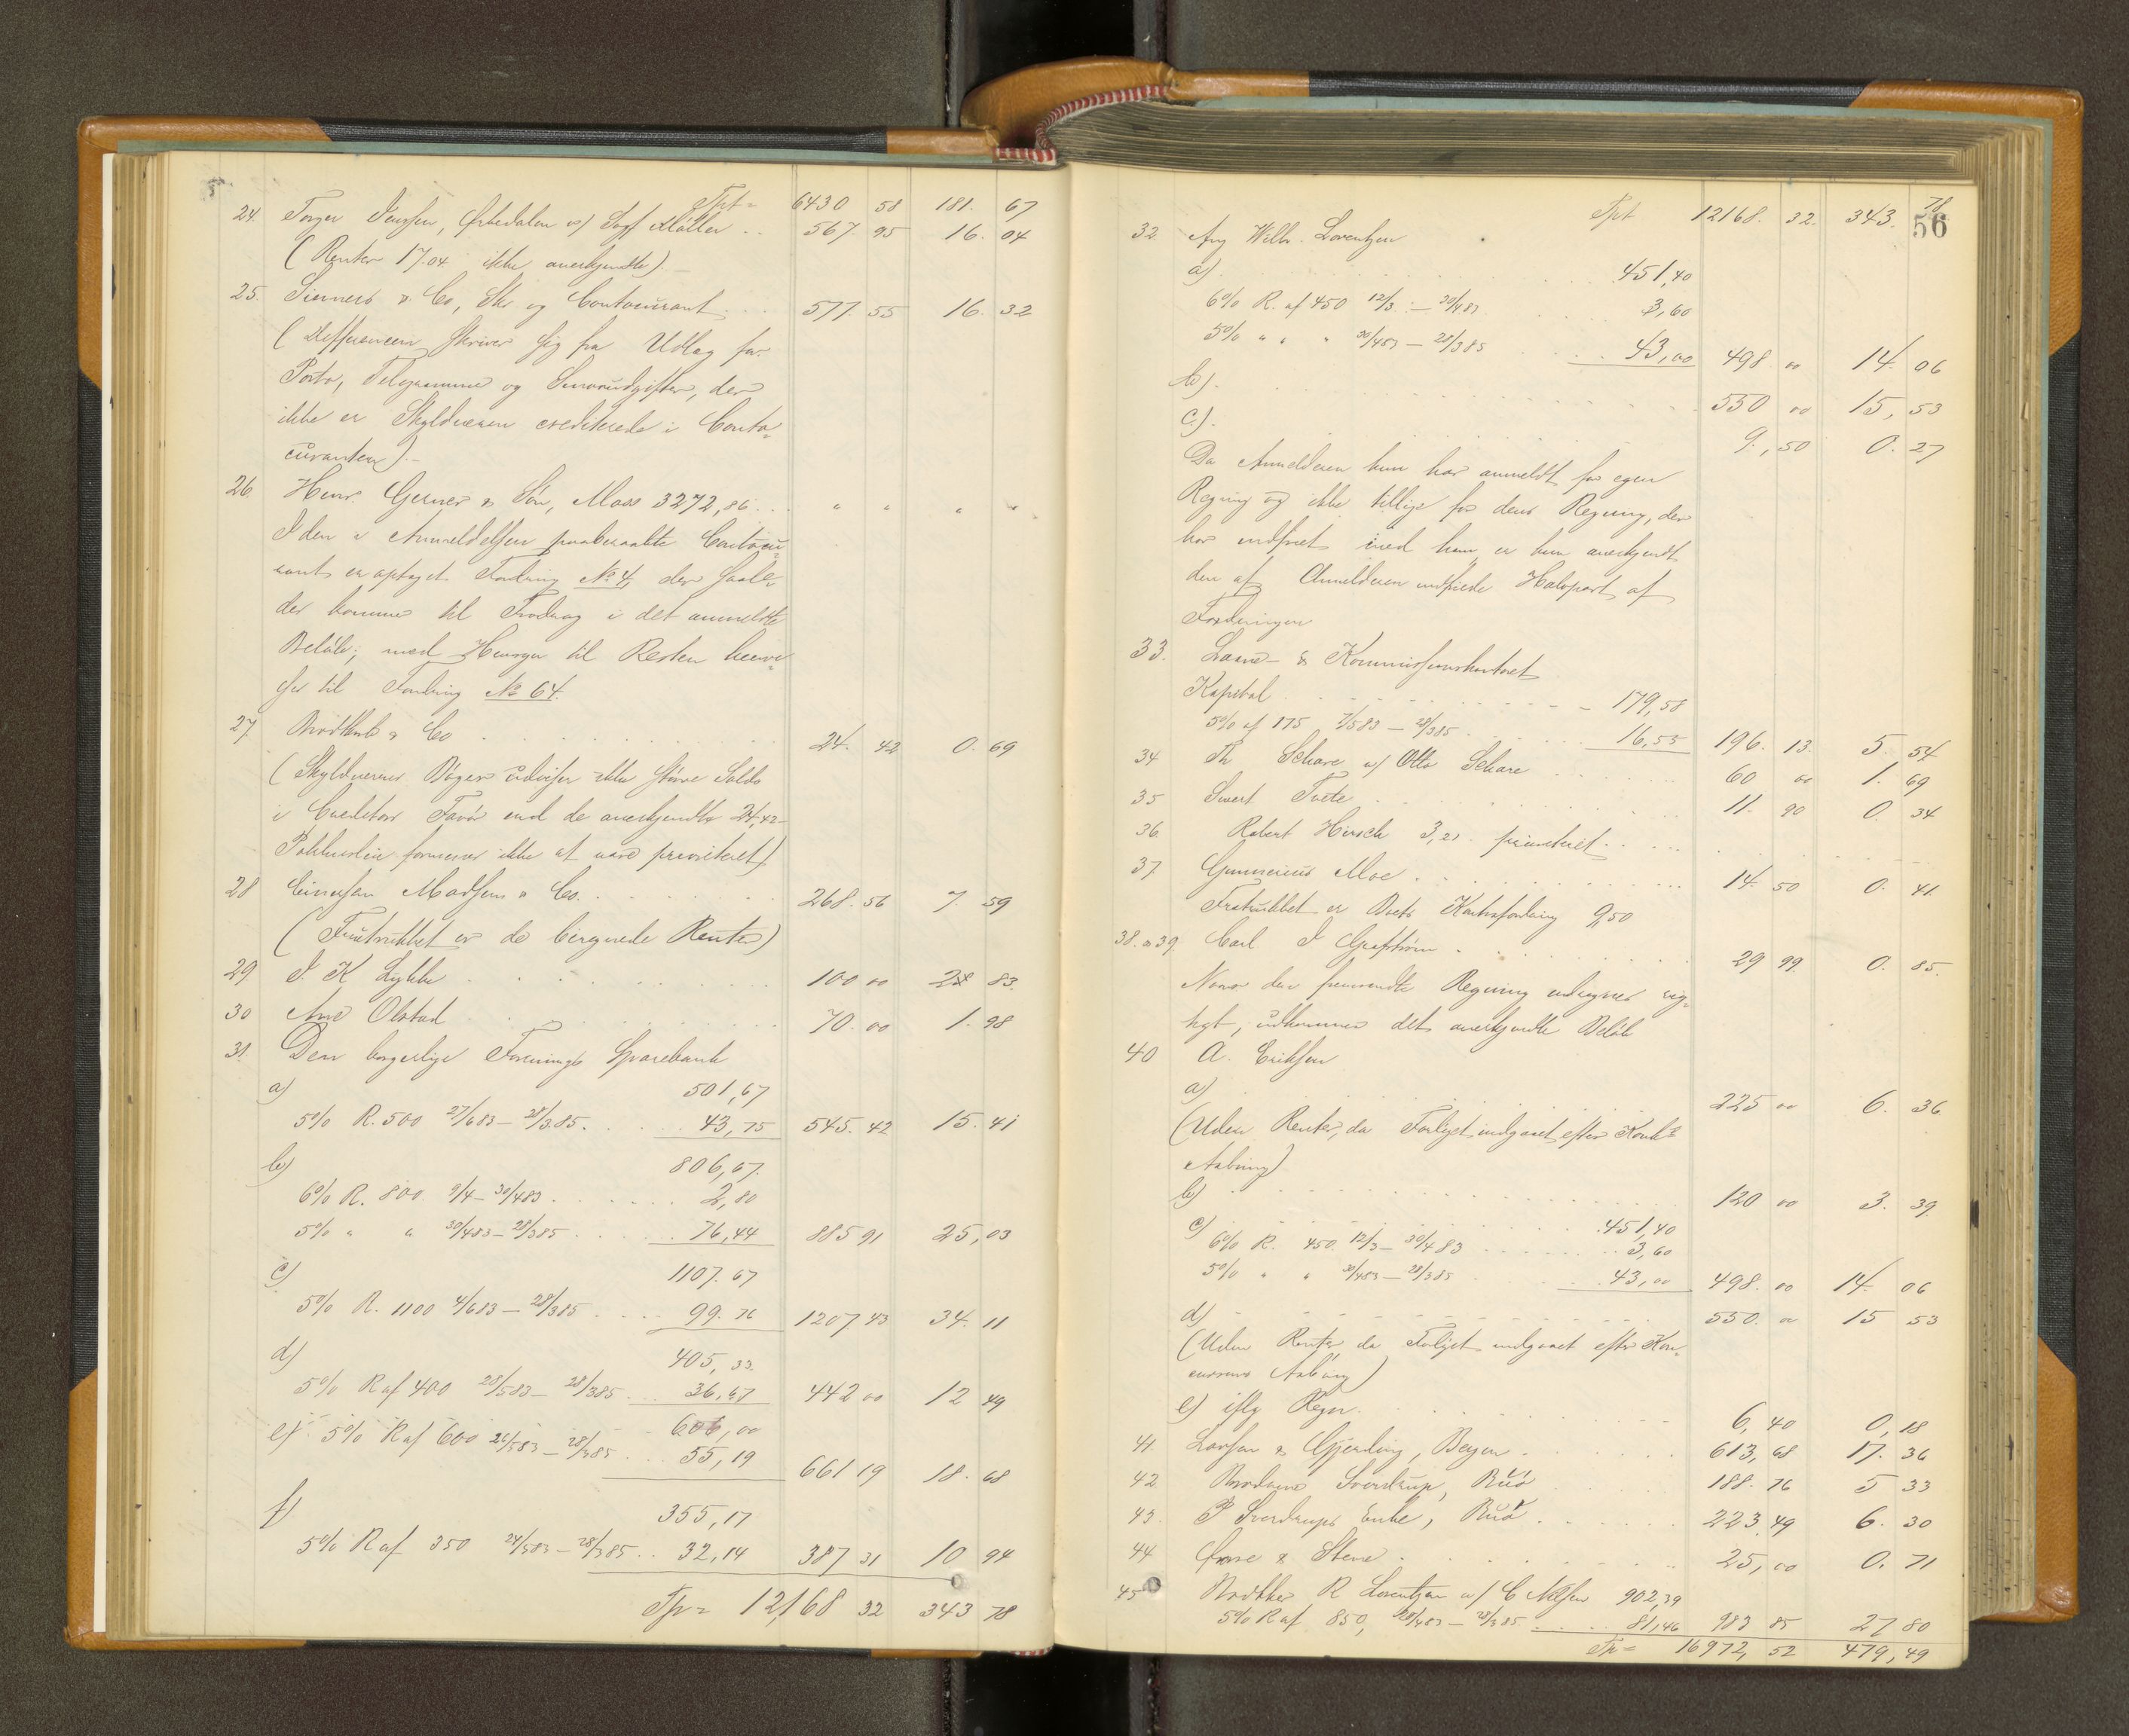 Tpt= 6430 58 181. 67
24. Torger Jenssen, Ørkedalen v/ Sagf Møller .. 567. 95 16. 04
(Renter 17.04 ikke anerkjendte).
25. Siemers & Co, Skr og Contocurant ... 577. 55 16. 32
(Differencen skriver sig fra Udlæg for
Porto, Telegrammer og Smaaudgifter, der
ikke er Skyldneren crediterede i Conto-
curanten).-
26. Henr. Gerner & Søn, Moss 3272,86 ... " " " "
I den i Anmeldelsen paaberaabte Contocu-
rant er optaget Fordring No 4, der saale-
der kommer til Fradrag i det anmeldte
Beløb; med Hensyn til Resten henvi-
ses til Fordring No 64.
27. Brødtkorb & Co 24. 42 0. 69
(Skyldnernes Bøger udviser ikke større Saldo
i Creditors Favør end de anerkjendte 24,42
Pakhusleie formenes ikke at være prioriteret)
28 Einersen Madsen & Co. 268. 56 7. 59
(Fratrukket er de beregnede Renter)
29 I. K Lykke 100 00 2 83.
30 Arne Olstad 70. 00 1. 98
31. Den borgerlige Forenings Sparebank
a) 501,67
5% R. 500 27/683 - 28/385. 43,75 545. 42 15. 41
b) 806,67.
6% R. 800. 9/4 - 30/483 2,80
5% " " 30/483 - 28/385 76,44 885 91 25,03
c) 1107. 67
5% R. 1100 4/683 - 28/385 99. 76 1207. 43 34. 11
d) 405, 33.
5% R af 400 28/583 - 28/385 36,67 442 00 12 49
e) 606,00
5% R af 600 26/583 - 28/385 55,19 661 19 18. 68
f) 355,17
5% R af 350 24/583 - 28/385 .. 32,14 387 31 10 94
Tp= 12,168 32 343 78
56
Tpt 12168. 32. 343. 78
32. Aug Wilh. Lorentzen
a). 451,40
6% R. af 450 12/3 - 30/483 3,60
5% " " " 30/483 - 28/385 43,00 498 00 14. 06
b). 550 00 15, 53
c). 9,50 0. 27
Da Anmelderen kun har anmeldt for egen
Regning og ikke tillige for dens Regning, der
har indfriet med ham er kun anerkjendt
den af Anmelderen indfriede Halvpart af
Fordringen
33. Laane- & Kommissionskontoret
Kapital 179,58
5% af 175 7/583 - 28/385 16,55 196. 13. 5. 54
34 Th Schare v/ Otto Schare 60 00 1. 69
35 Sivert Tvete 11. 90 0. 34
36. Robert Hirsch 3,21. prioriteret
37 Gunnerius Moe 14. 50 0. 41
Fratrukket er Boets Kontrafordring 9,50
38. & 39. Carl I Grefstrøm 29 99. 0. 85.
Naar den fremsendte Regning udregnes rig-
tigt, udkommer det anerkjendte Beløb
40 A. Eriksen
a) 225 00 6. 36
(Uden Renter, da Forliget indgaaet efter Konk
Aabning)
b) 120 00 3. 39.
c) 451,40
6% R. 450. 12/3 - 30/483 3,60
5% " " 30/483 - 28/385 43,00 498. 00 14. 06
d) 550. 00 15 53
(Uden Renter, da Forliget indgaaet efter Kon-
cursens Aabning)
e) iflg Regn. 6, 40 0, 18
41. Larsen & Gjerding, Bergen 613, 68 17. 36
42 Brødrene Sverdrup, Buø 188. 76 5 33
43. P Sverdrups Enke, Buø 223. 49 6. 30
44 & Stene 25, 00 0. 71
45 R Lorentzen v/ C Nilsen 902,39
5% R af 850, 28/483 - 28/385 81,46 983 85 27 80
Tp= 16972, 52 479, 49